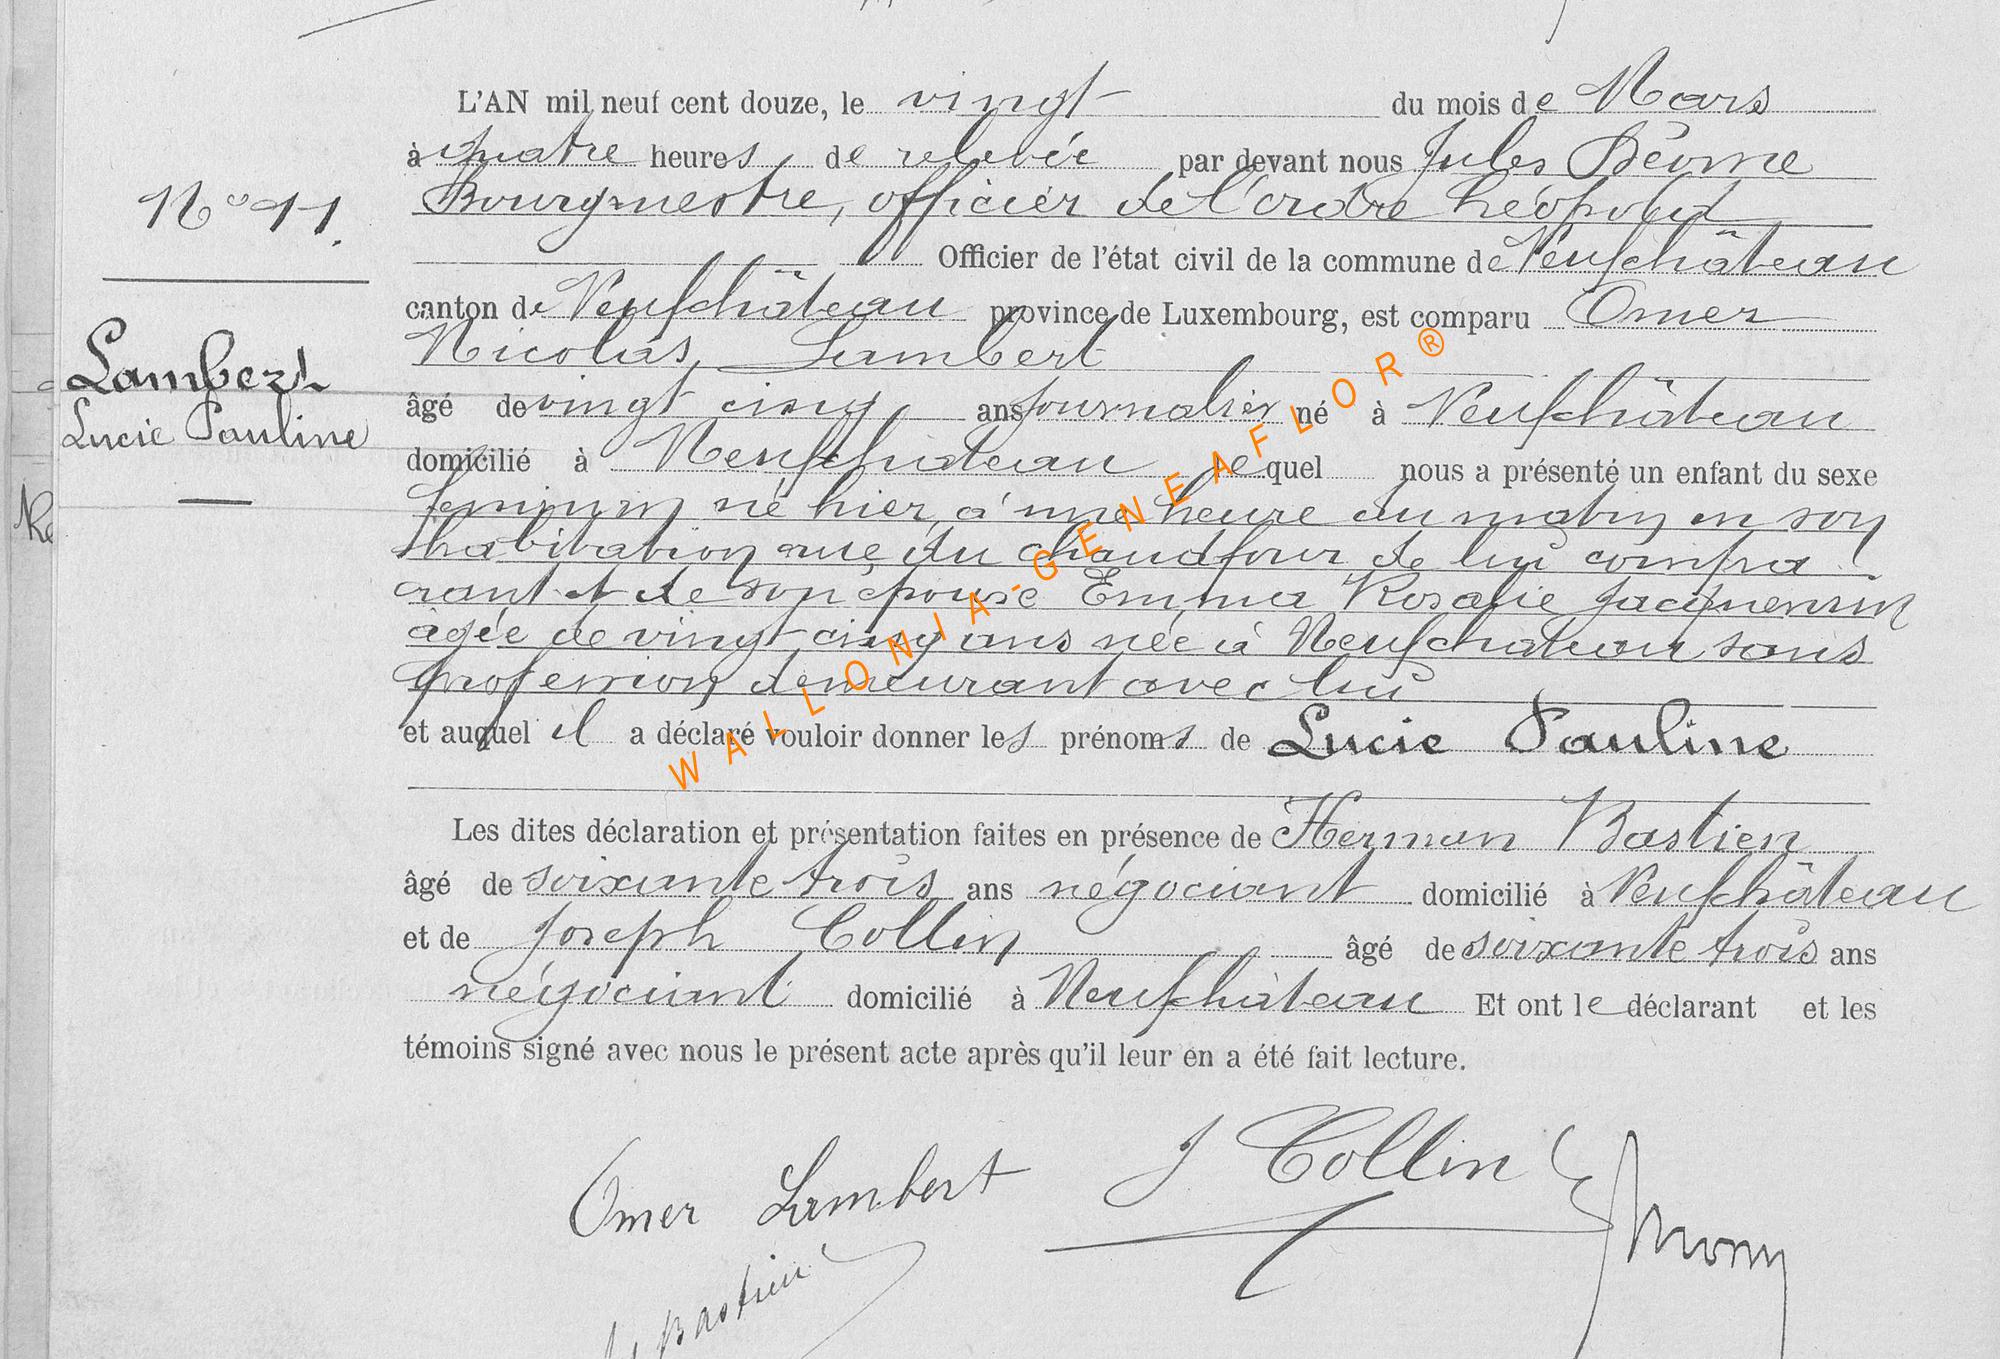 L'AN mil neuf cent douze, le vingt du mois de Mars
à quatre heures de relevée par devant nous Jules
Bourgmestre, officier de l'ordre Léopold
N° 11.
Officier de l'état civil de la commune de Neufchâteau
canton de Neufchâteau province de Luxembourg, est comparu Omer
Nicolas Lambert
Lambert
Lucie Pauline
âgé de vingt cinq ans journalier né à Neufchâteau
domicilié à Neufchâteau lequel nous a présenté un enfant du sexe
féminin né hier, à une heure du matin en son
habitation rue du chaudfour de lui compa
rant et de son épouse Emma Rosalie Jacquemin
âgée de vingt cinq ans née à Neufchateau sans
profession demeurant avec lui
et auquel il a déclaré vouloir donner les prénoms de Lucie Pauline
Les dites déclaration et présentation faites en présence de Herman Bastien
âgé de soixante trois ans négociant domicilié à Neufchâteau
et de Joseph Collin âgé de soixante trois ans
négociant domicilié à Neufchâteau Et ont le déclarant et les
témoins signé avec nous le présent acte après qu'il leur en a été fait lecture.
Omer Lambert J Collin
Bastien
WALLONIA-GENEAFLOR®